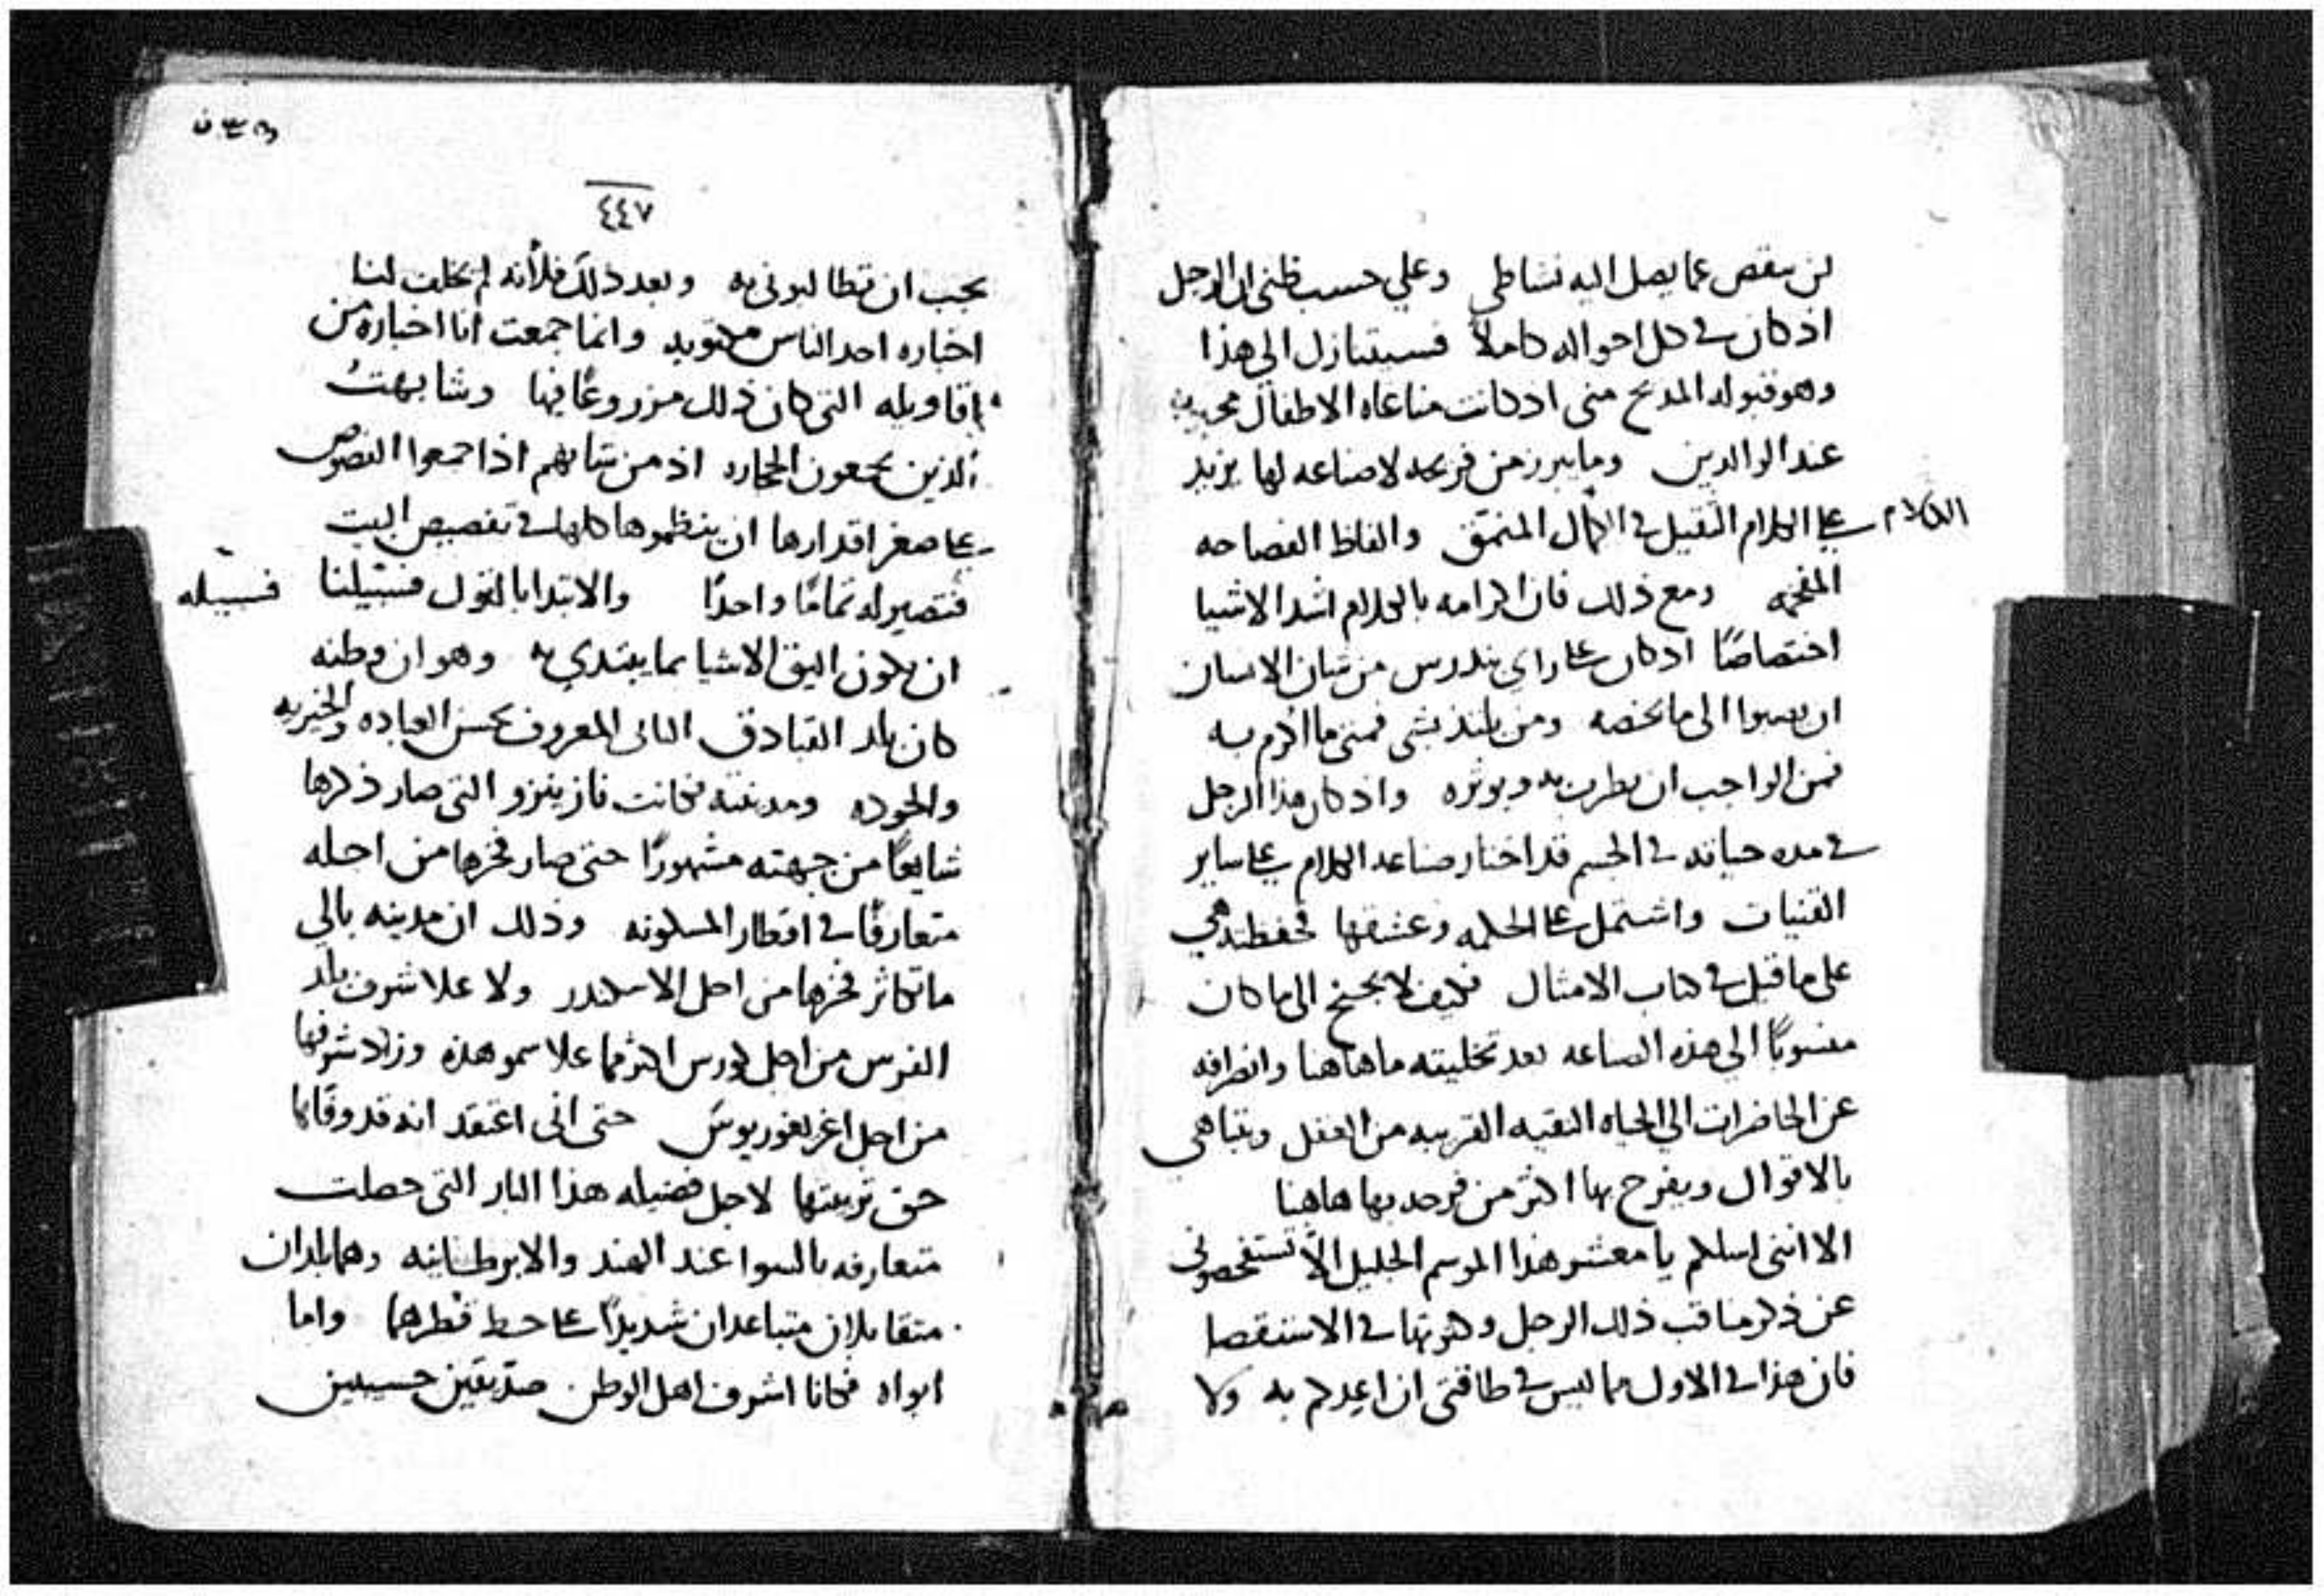 لن ينقص عما يصل اليه نشاطي وعلي حسب ظني ان الرجل
اذ كان في كل احواله كاملاً فسيتنازل الي هذا
وهو قبوله المديح مني اذ كانت مناغاه الاطفال
عند الوالدين وما يبرز من قريحه لا صناعه لها يزيد
علي الكلام الثقيل في الكمال المنمق والفاظ الفصاحه
الكلام
المفخمه ومع ذلك فان اكرامه بالكلام اشد الاشيا
اختصاصًا اذ كان علي راي بندرس من شان الانسان
ان يصبوا الي ما يخصه ومن يلتذ بشي فمتي ما اكرم به
فمن الواجب ان يطرب به ويوثره واذ كان هذا الرجل
في مده حياته في الجسم قد اختار صناعه الكلام علي ساير
القنيات واشتمل علي الحكمه وعشقها فحفظته هي
علي ما قيل في كتاب الامثال فكيف لا يجنح الي ما كان
منسوبًا الي هذه الصناعه بعد تخليته ما هاهنا وانصرافه
عن الحاضرات الي الحياه النقيه القريبه من العقل ويتباهي
بالاقوال ويفرح بها اكثر من فرحه بها هاهنا
الا انني اسلكم يا معشر هذا الموسم الجليل الاّ تستفحصوني
عن ذكر مناقب ذلك الرجل وكثرتها في الاستقصا
فان هذا في الاول مما ليس في طاقتي ان اعدكم به ولا
٤٤٧
يجب ان تطالبوني به وبعد ذلك فلأنه لم يخلف لنا
اخباره احد الناس مكتوبه وانما جمعت انا اخباره من
اقاويله التي كان ذلك مزروعًا فيها وشابهتُ
الذين يجمعون الحجاره اذ من شانهم اذا جمعوا الفصوص
علي صغر اقدارها ان ينظموها كلها في تفصيص البيت
فتصير له تمامًا واحدًا والابتدا بالقول فسبيلنا
فسبيله
ان يكون اليق الاشيا بما يبتدي به وهو ان وطنه
كان بلد القبادق الثاني المعروف بحسن العباده والخيريه
والجوده ومدينته فكانت نازينزو التي صار ذكرها
شايعًا من جهته مشهورًا حتي صار فخرها من اجله
متعارفًا في اقطار المسكونه وذلك ان مدينه بالي
ما تكاثر فخرها من اجل الاسكندر ولا علا شرف بلد
الفرس من اجل كورس اكثر مما علا سمو هذه وزاد شرفها
من اجل اغريغوريوس حتي اني اعتقد انه قد وفاها
حق تربيتها لاجل فضيله هذا البار التي حصلت
متعارفه بالسوا عند الهند والابرطانيه وهما بلدان
متقابلان متباعدان شديدًا علي خط قطرهما واما
ابواه فكانا اشرف اهل الوطن صدّيقين حسيبين